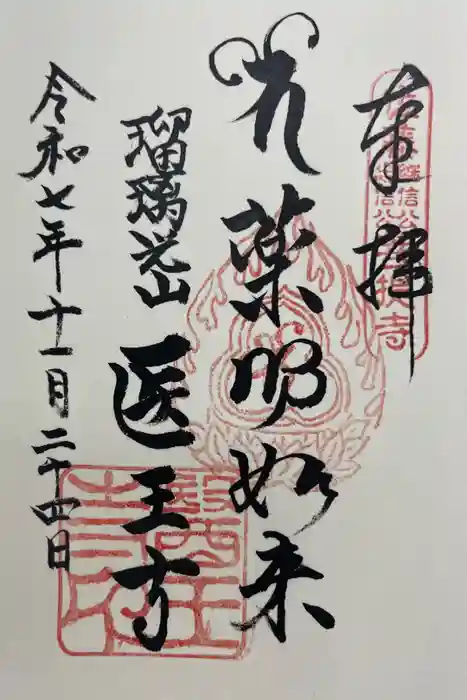 奉拝
薬師如来
瑠璃光山 医王寺
令和七年十一月二十四日